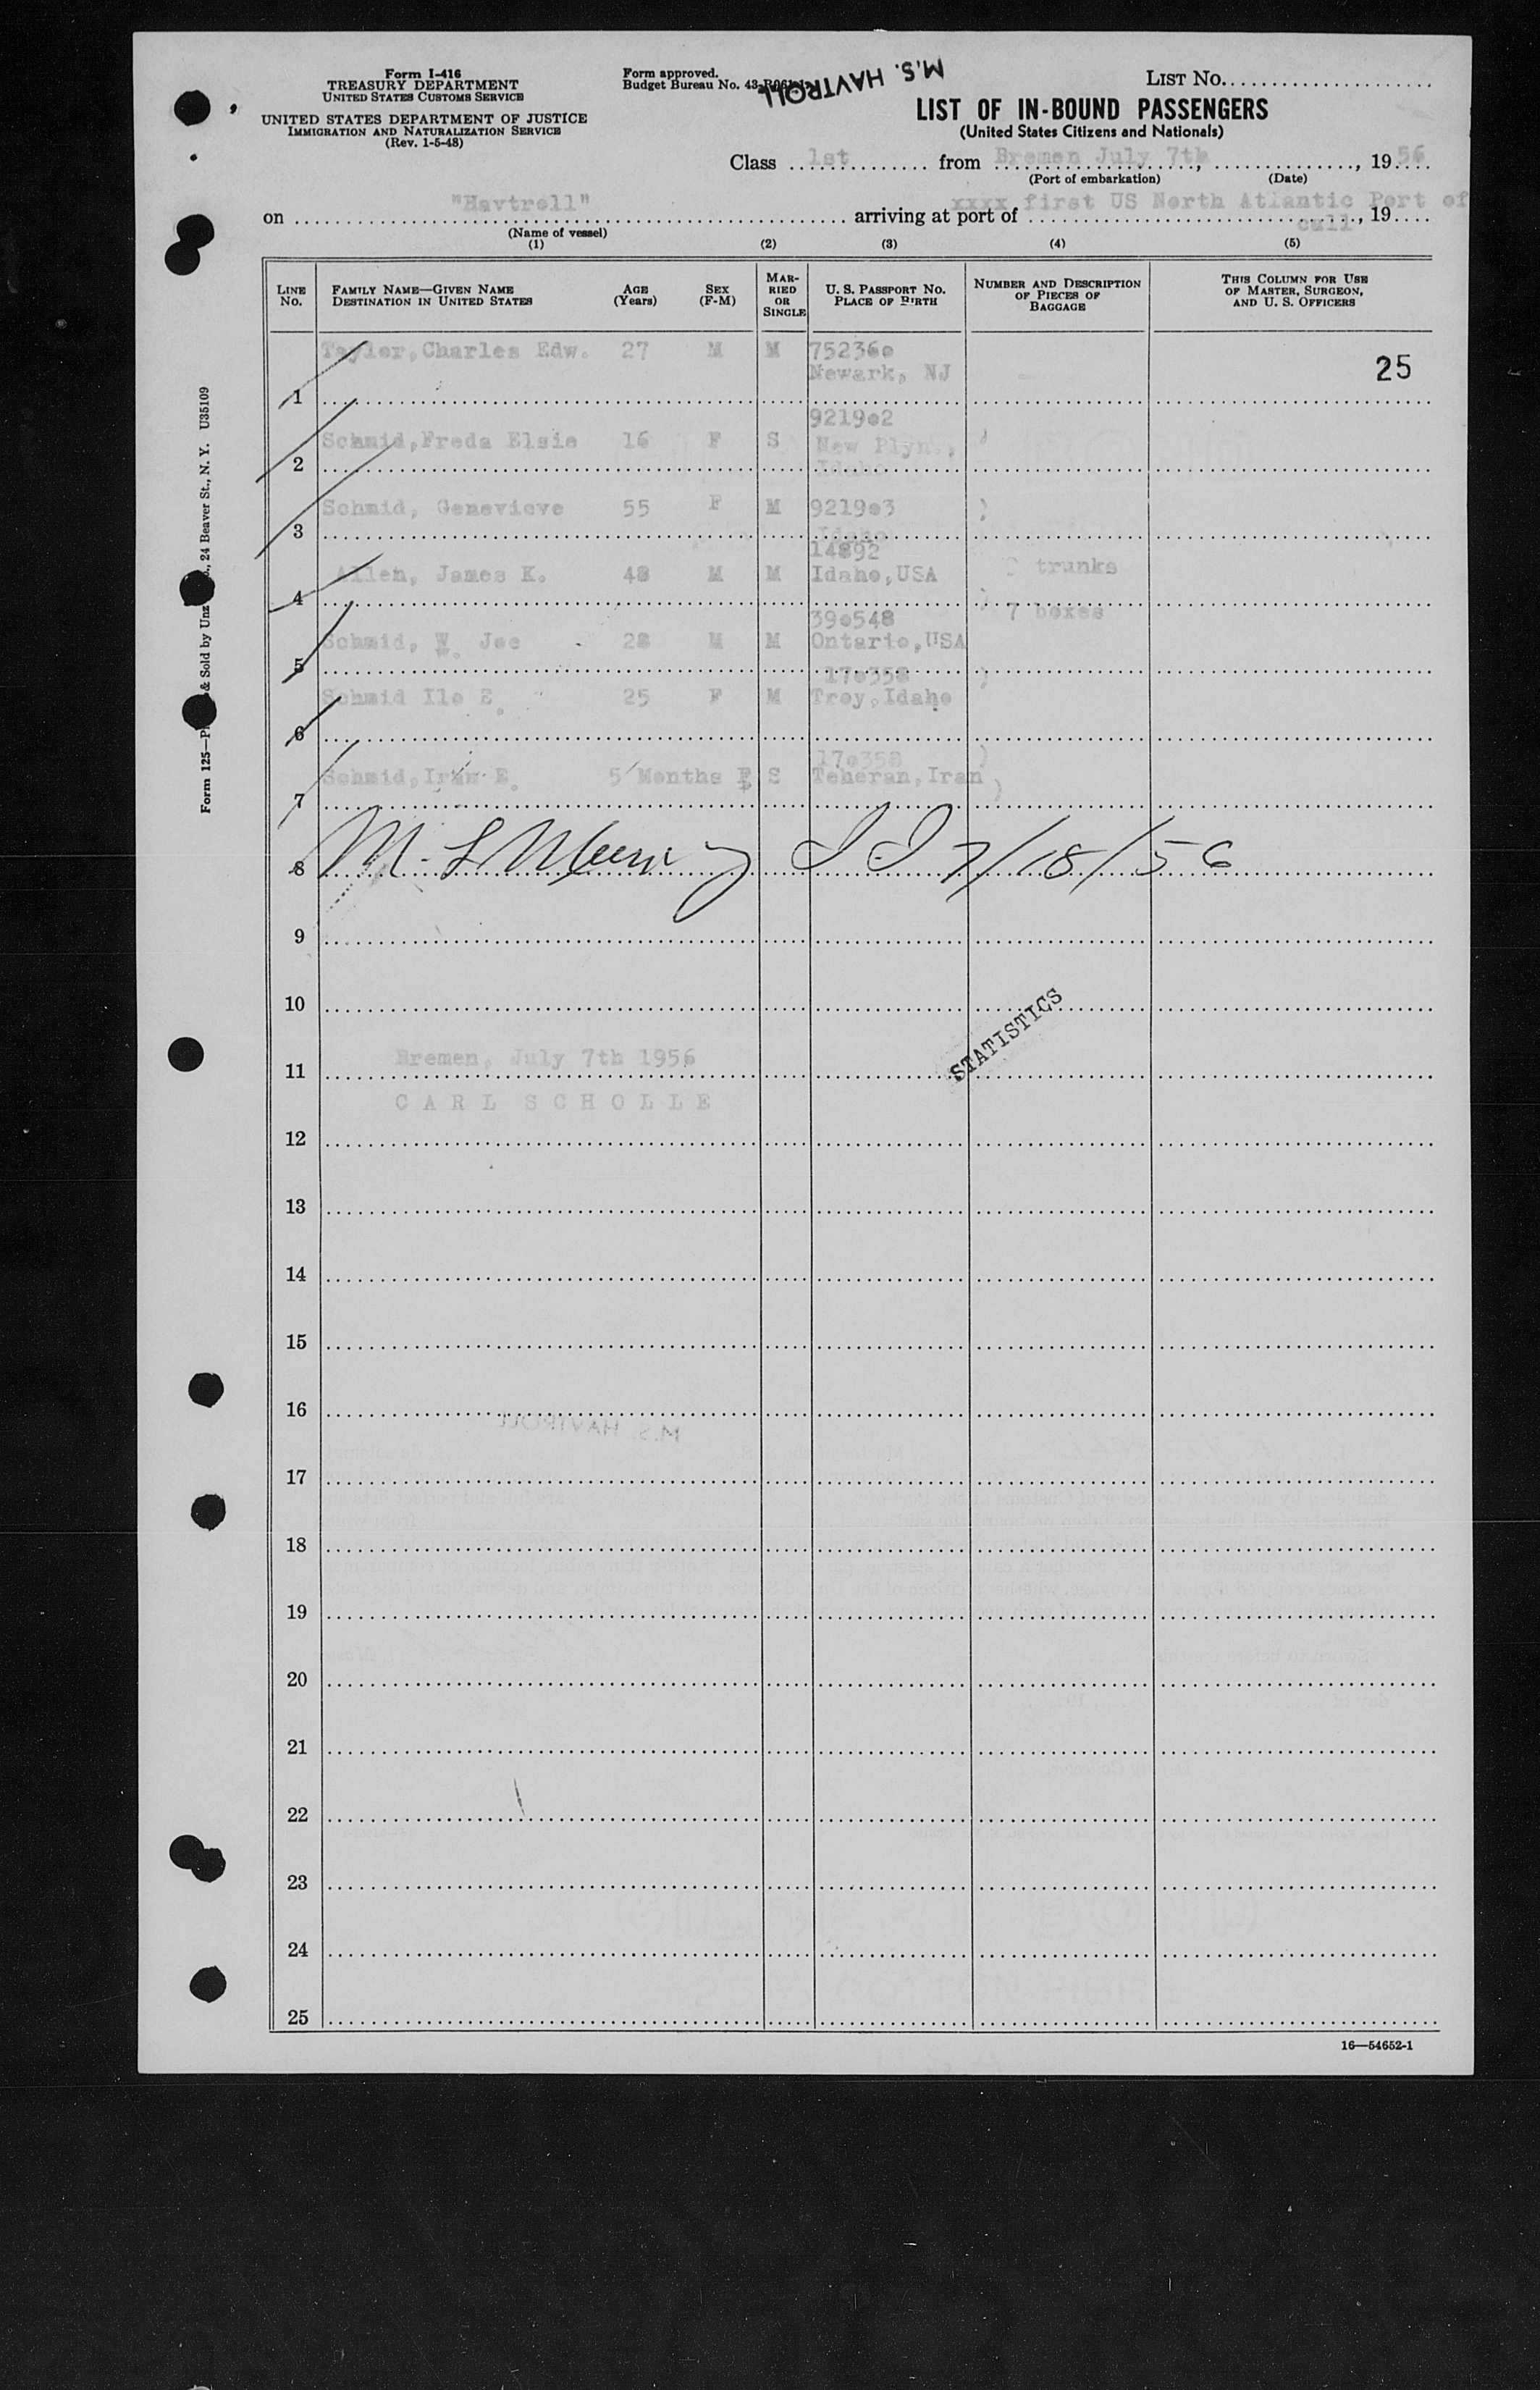 Form I-416
TREASURY DEPARTMENT
UNITED STATES CUSTOMS SERVICE
UNITED STATES DEPARTMENT OF JUSTICE
IMMIGRATION AND NATURALIZATION SERVICE
(Rev. 1-5-48)
Form approved.
Budget Bureau No. 43-
M.S. HAVTROLL
LIST No.
LIST OF IN-BOUND PASSENGERS
(United States Citizens and Nationals)
Class 1st from Bremen July 7th , , 19 56
(Port of embarkation) (Date)
on "Havtroll" arriving at port of xxxx first US North Atlantic Port of call , 19
(Name of vessel)
(1) (2) (3) (4) (5)
LINE No. FAMILY NAME—GIVEN NAME DESTINATION IN UNITED STATES AGE (Years) SEX (F-M) MARRIED OR SINGLE U. S. PASSPORT NO. PLACE OF BIRTH NUMBER AND DESCRIPTION OF PIECES OF BAGGAGE THIS COLUMN FOR USE OF MASTER, SURGEON, AND U. S. OFFICERS
1 Taylor, Charles Edw. 27 M M 75236o Newark, NJ 25
2 Schmid, Freda Elsie 16 F S 9219o2 New Plym., Idaho
3 Schmid, Genevieve 55 F M 9219o3 Idaho
4 Allen, James K. 48 M M 14892 Idaho, USA trunks
7 boxes
5 Schmid, W. Joe 28 M M 39o548 Ontario, USA
6 Schmid Ilo E. 25 F M 17o358 Troy, Idaho
7 Schmid, Iran E. 5 Months F S 17o358 Teheran, Iran
8 7/18/56
9
10
STATISTICS
11 Bremen, July 7th 1956
CARL SCHOLLE
12
13
14
15
16
M.S. HAVTROLL
17
18
19
20
21
22
23
24
25
16—54652-1
Form 125— & Sold by Unz , 24 Beaver St., N. Y. U35109